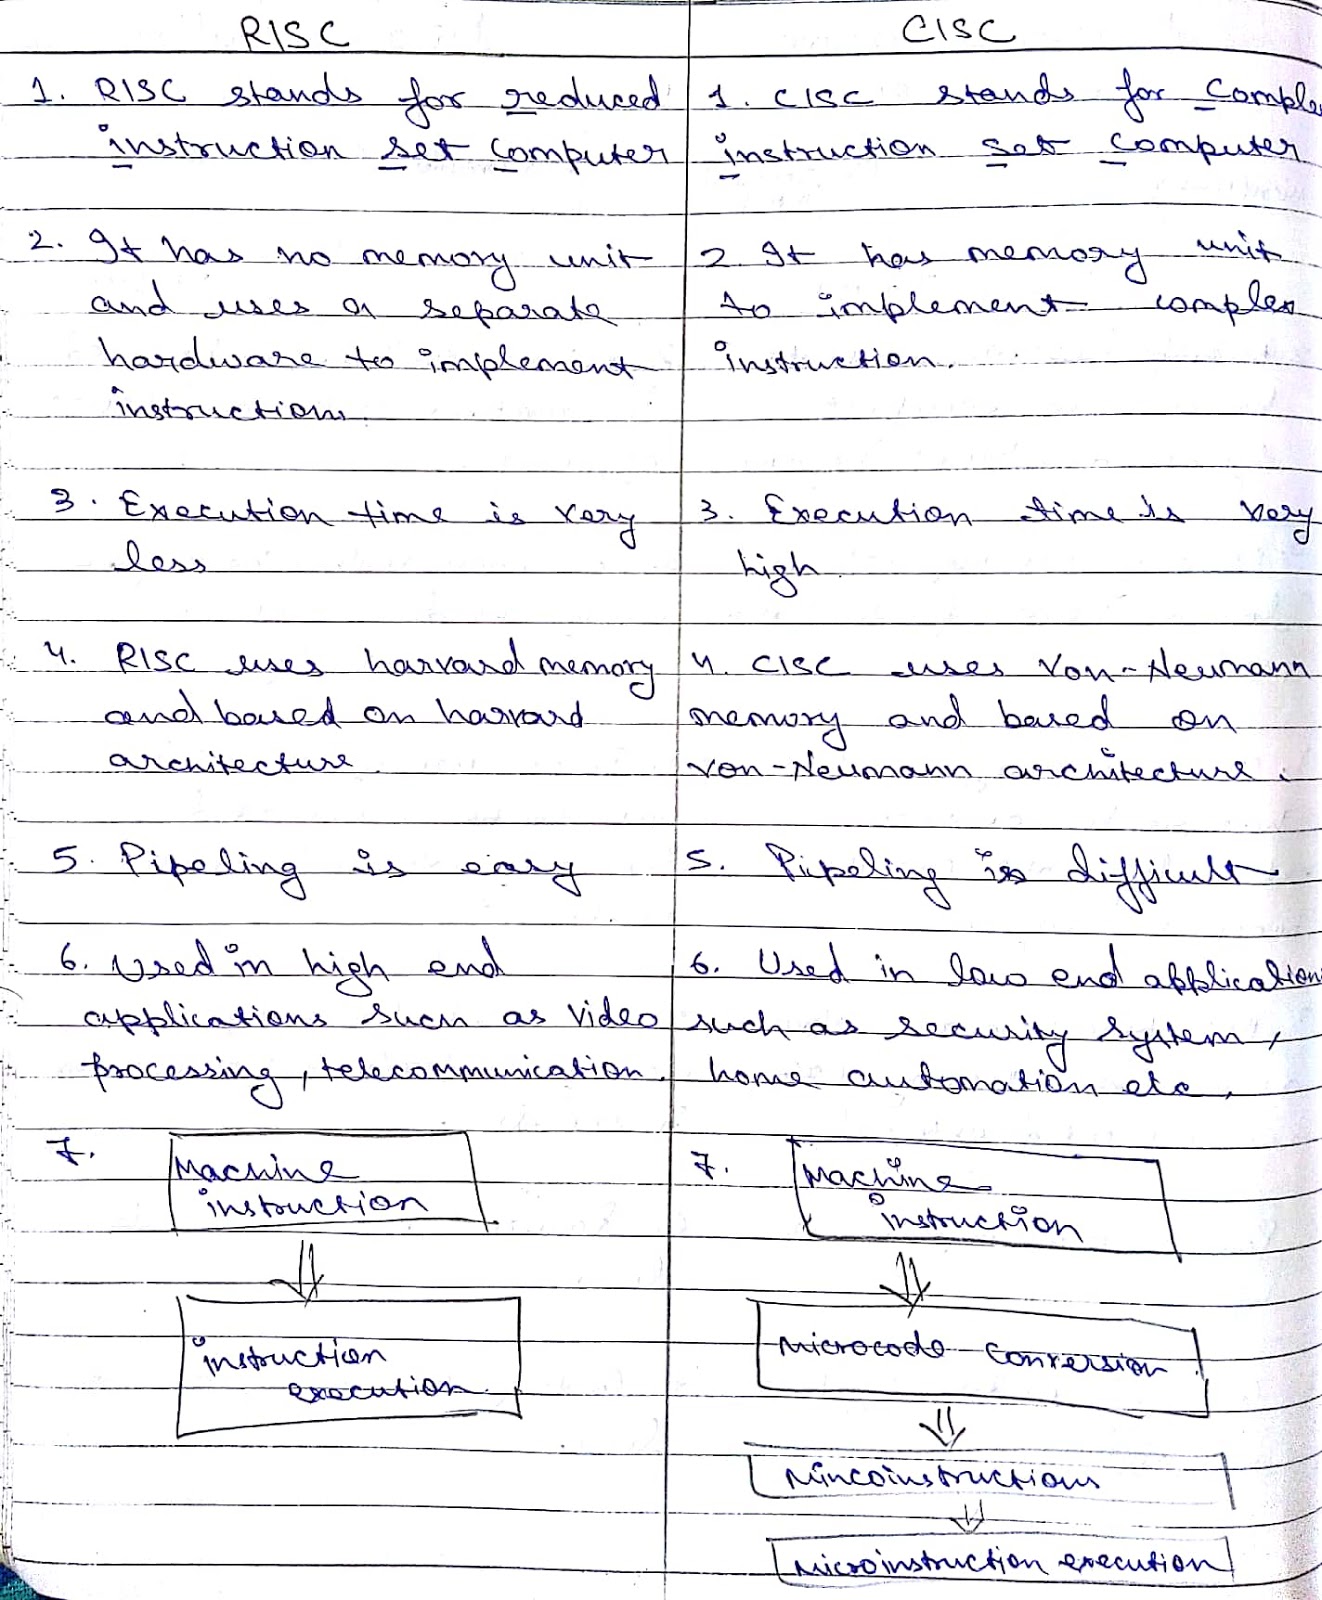 RISC
1. RISC stands for reduced
instruction set computer
2. It has no memory unit
and uses a separate
hardware to implement
instruction.
3. Execution time is very
less
4. RISC uses harvard memory
and based on harvard
architecture.
5. Pipeling is easy
6. Used in high end
applications such as video
processing, telecommunication.
7.
Machine
instruction
instruction
execution.
CISC
1. CISC stands for Comple
instruction set Computer
2. It has memory unit
to implement complex
instruction.
3. Execution time is very
high.
4. CISC uses Von-Neumann
memory and based on
von-Neumann architecture.
5. Pipeling is difficult
6. Used in low end application
such as security system,
home automation etc.
7.
Machine
instruction
Microcode conversion
Mincoinstructions
Microinstruction execution